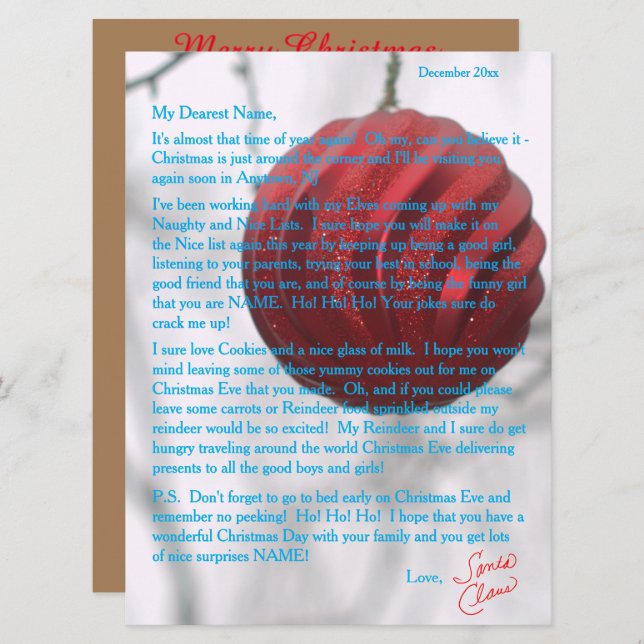 Merry Christmas
December 20xx
My Dearest Name,
It's almost that time of year again!  Oh my, can you believe it -
Christmas is just around the corner and I'll be visiting you
again soon in Anytown, NJ
I've been working hard with my Elves coming up with my
Naughty and Nice Lists.  I sure hope you will make it on
the Nice list again this year by keeping up being a good girl,
listening to your parents, trying your best in school, being the
good friend that you are, and of course by being the funny girl
that you are NAME.  Ho! Ho! Ho! Your jokes sure do
crack me up!
I sure love Cookies and a nice glass of milk.  I hope you won't
mind leaving some of those yummy cookies out for me on
Christmas Eve that you made.  Oh, and if you could please
leave some carrots or Reindeer food sprinkled outside my
reindeer would be so excited!  My Reindeer and I sure do get
hungry traveling around the world Christmas Eve delivering
presents to all the good boys and girls!
P.S.  Don't forget to go to bed early on Christmas Eve and
remember no peeking!  Ho! Ho! Ho!  I hope that you have a
wonderful Christmas Day with your family and you get lots
of nice surprises NAME!
Love, Santa
Claus